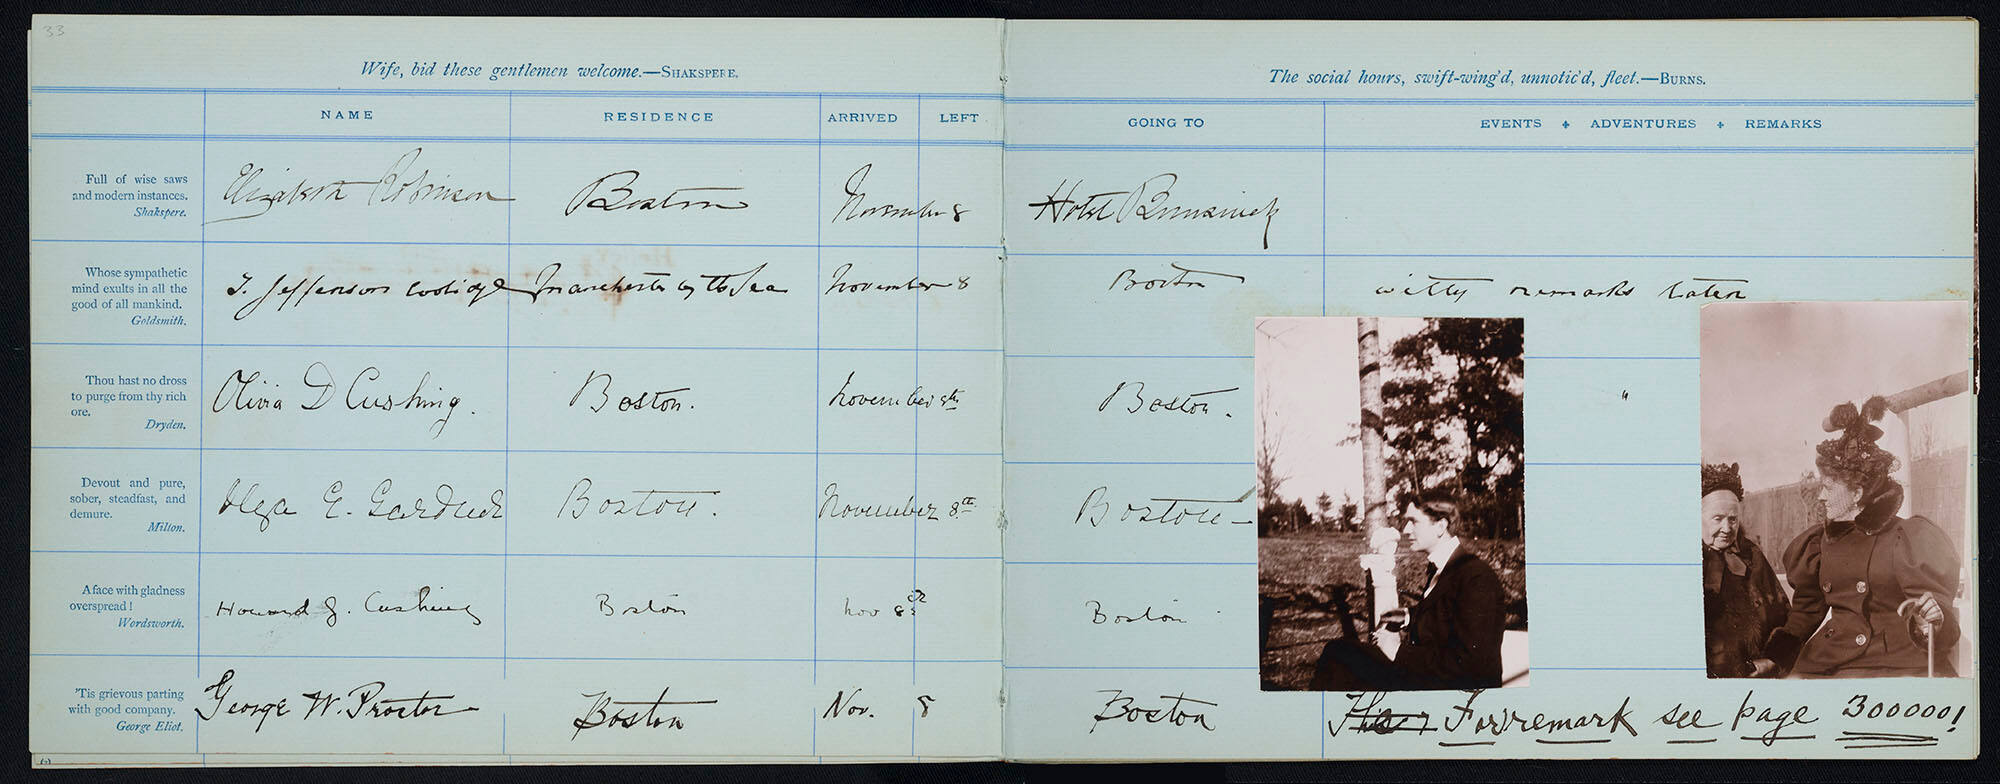 33
Wife, bid these gentlemen welcome.—SHAKSPERE.
The social hours, swift-wing'd, unnotic'd, fleet.—BURNS.
NAME RESIDENCE ARRIVED LEFT GOING TO EVENTS + ADVENTURES + REMARKS
Full of wise saws
and modern instances.
Shakspere.
Elizabeth Robinson Boston November 8 Hotel Brunswick
Whose sympathetic
mind exults in all the
good of all mankind.
Goldsmith.
T. Jefferson Coolidge Manchester by the Sea November 8 Boston witty remarks later
Thou hast no dross
to purge from thy rich
ore.
Dryden.
Olivia D Cushing. Boston. November 8th Boston. "
Devout and pure,
sober, steadfast, and
demure.
Milton.
Olga E. Gardner Boston. November 8th Boston—
A face with gladness
overspread!
Wordsworth.
Howard G. Cushing Boston Nov 8th Boston
'Tis grievous parting
with good company.
George Eliot.
George W. Proctor Boston Nov. 8 Boston For remark see page 300000!